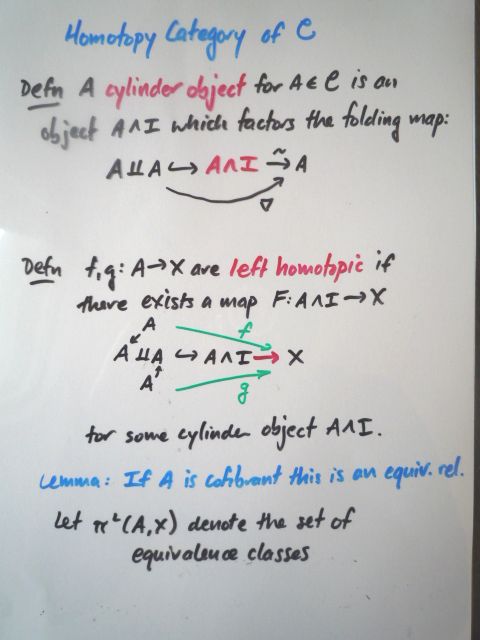 Homotopy Category of C
Defn A cylinder object for A ∈ C is an
object A∧I which factors the folding map:
A⨿A ↪ A∧I →~ A
∇
Defn f,g: A→X are left homotopic if
there exists a map F: A∧I → X
A f
A⨿A ↪ A∧I → X
A g
for some cylinder object A∧I.
Lemma: If A is cofibrant this is an equiv. rel.
Let πˡ(A,X) denote the set of
equivalence classes